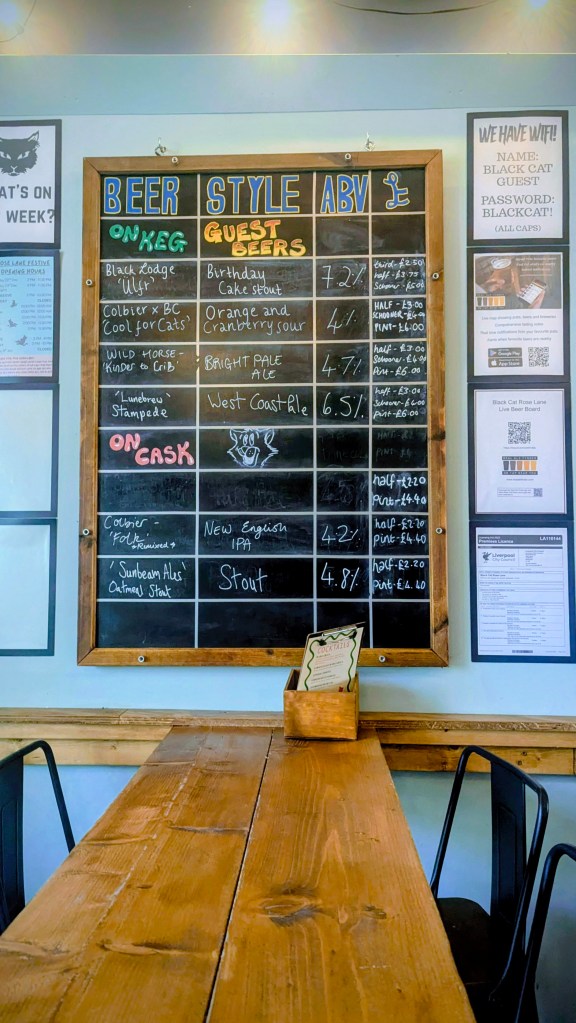 BEER STYLE ABV £
ON KEG
GUEST BEERS
Black Lodge 'Ulfr'
Birthday Cake stout
7.2%
third - £2.50
half - £3.75
Schooner - £5.00
Colbier x BC 'Cool for Cats'
Orange and Cranberry sour
4%
HALF - £3.00
SCHOONER - £4.00
PINT - £4.00
WILD HORSE - 'Kinder to Crib'
BRIGHT PALE ALE
4.7%
half - £3.00
Schooner - £4.00
Pint - £6.00
'Lunebrew' Stampede
West Coast Pale
6.5%
half - £3.00
Schooner - £4.00
pint - £6.00
ON CASK
half - £2.20
pint - £4.40
Colbier - 'Folk' *Rewired*
NEW ENGLISH IPA
4.2%
half - £2.20
pint - £4.40
'Sunbeam Ales' Oatmeal Stout
Stout
4.8%
half - £2.20
pint - £4.40
AT'S ON
WEEK?
OUR LANE FESTIVE
OPENING HOURS
WE HAVE WIFI!
NAME:
BLACK CAT
GUEST
PASSWORD:
BLACKCAT!
(ALL CAPS)
Google Play
App Store
Black Cat Rose Lane
Live Beer Board
Premises Licence
Liverpool
City Council
COCKTAILS